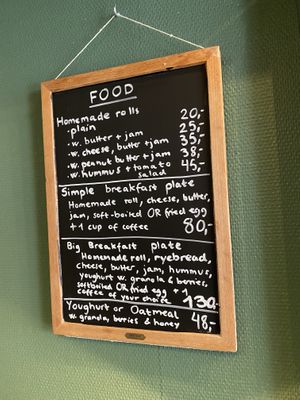 FOOD
Homemade rolls
· plain 20,-
· w. butter + jam 25,-
· w. cheese, butter + jam 35,-
· w. peanut butter + jam 38,-
· w. hummus + tomato salad 45,-
Simple breakfast plate
Homemade roll, cheese, butter,
jam, soft-boiled OR fried egg
+ 1 cup of coffee 80,-
Big Breakfast plate
Homemade roll, ryebread,
cheese, butter, jam, hummus,
youghurt w. granola & berries,
softboiled OR fried egg + 1
coffee of your choice 130,-
Youghurt or Oatmeal
w. granola, burries & honey 48,-